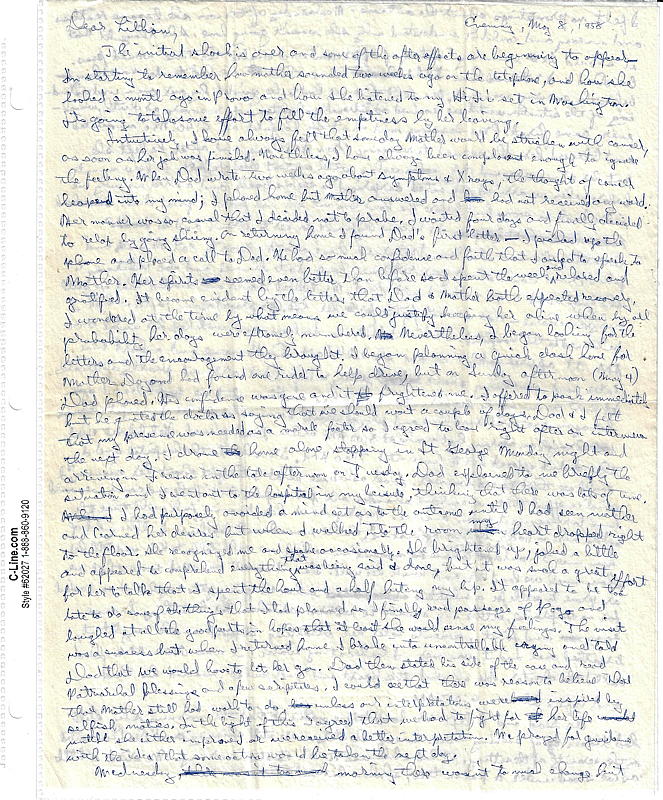 Dear Lillian,
Thursday, May 8, 1958
The initial shock is over and some of the after effects are beginning to appear.
I'm starting to remember how mother sounded two weeks ago on the telephone, and how she
looked a month ago in Provo and how she listened to my set in Washington.
It's going to take some effort to fill the emptiness by her leaving.
Intuitively, I have always felt that someday Mother would be stricken with cancer,
as soon as her job was finished. Nonetheless, I have always been complacent enough to ignore
the feeling. When Dad wrote two weeks ago about symptoms & X rays, the thought of cancer
leaped into my mind; I phoned home but Mother answered and had not received any word.
Her manner was so casual that I decided not to probe. I waited four days and finally decided
to relax by going skiing. On returning home I found Dad's first letter — I picked up the
phone and placed a call to Dad. He had so much confidence and faith that I asked to speak to
Mother. Her spirits seemed even better than before so I spent the week relaxed and
gratified. It became evident by the letters that Dad & Mother both expected recovery,
I wondered at the time by what means we could justify keeping her alive when by all
probability her days were extremely numbered. Nevertheless, I began looking for the
letters and the encouragement they brought. I began planning a quick dash home for
Mother's Day and had found one rider to help drive, but on Sunday afternoon (May 4)
Dad phoned. His confidence was gone and it frightened me. I offered to come immediately
but he quoted the doctor as saying that we should wait a couple of days. Dad & I felt
that my presence was needed as a morale factor so I agreed to leave right after an interview
the next day. I drove home alone, stopping in St George Monday night and
arriving in Fresno in the late afternoon on Tuesday. Dad explained to me briefly the
situation and I went out to the hospital in my leisure, thinking that there was lots of time.
I had purposely avoided a mind set as to the outcome until I had seen mother
and learned her desires but when I walked into the room my heart dropped right
to the floor. She recognized me and spoke occasionally. She brightened up, joked a little
and appeared to comprehend everything that was being said & done, but it was such a great effort
for her to talk that I spent the hour and a half biting my lip. It appeared to be too
late to do some of the things that I had planned so I finally read passages of Pogo and
laughed at all the good parts in hopes that at least she would sense my feelings. The visit
was a success but when I returned home I broke into uncontrollable crying and told
Dad that we would have to let her go. Dad then stated his side of the case and read
Patriarchal Blessings and a few scriptures. I could see that there was reason to believe that
that Mother still had work to do, unless our interpretations were inspired by
selfish motives. In the light of this I agreed that we had to fight for her life
until she either improved or we received a better interpretation. We prayed for guidance
with the idea that some action would be taken the next day.
Wednesday, morning there wasn't too much change but
C-Line.com
Style #62027 1-888-860-9120